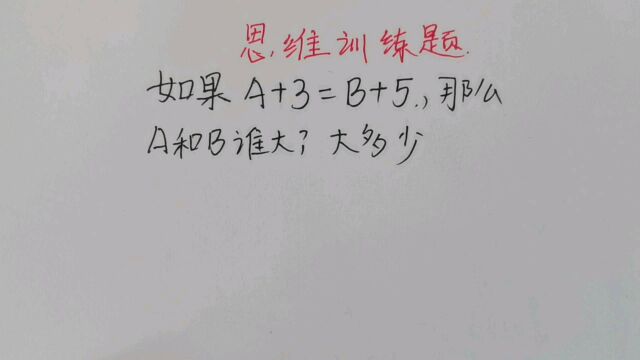 思维训练题.
如果 A+3=B+5.,那么
A和B谁大?大多少